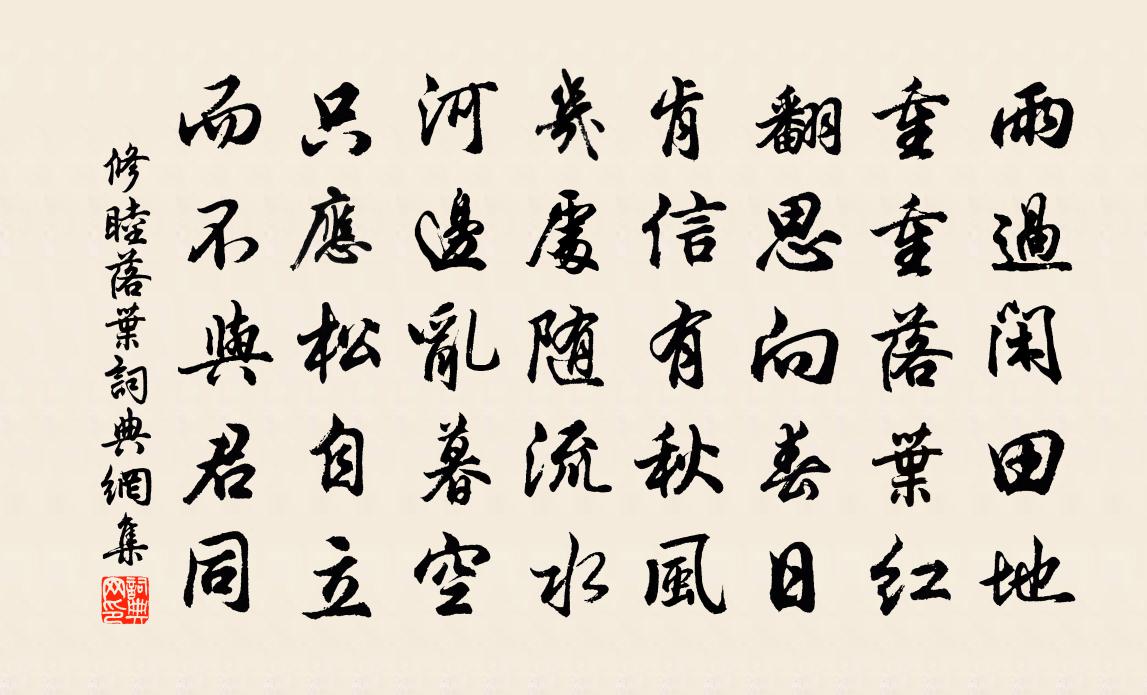 雨過閑田地
重重落葉红
翻思向春日
肯信有秋風
幾處随流水
河邊亂暮空
只應松自立
而不與君同
修睦落葉詞典網集
詞典网印